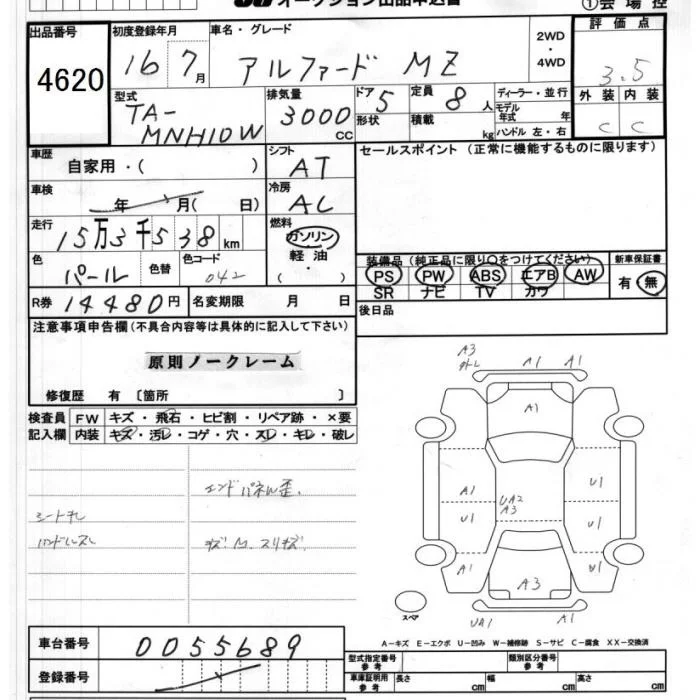 オークション出品申込書 ①会場控
出品番号 初度登録年月 車名・グレード 2WD・4WD 評価点
4620 16 7月 アルファード MZ 3.5
型式 排気量 ドア 定員 ディーラー・並行 外装 内装
TA-MNH10W 3000CC 5 8人 モデル年式 年 C C
形状 積載 kg ハンドル 左・右
車歴 シフト セールスポイント(正常に機能するものに限ります)
自家用・( ) AT
車検 冷房
年 月( 日) AC
走行 燃料
15万3千538km ガソリン
軽油
・
( )
装備品(純正品に限り○をつけてください) 新車保証書
PS PW ABS エアB AW 有・無
SR ナビ TV カワ
色 色替 色コード
パール 042
後日品
R券 14480円 名変期限 月 日
注意事項申告欄(不具合内容等は具体的に記入して下さい)
原則ノークレーム
修復歴 有〔箇所 〕
検査員 FW キズ・飛石・ヒビ割・リペア跡・×要
記入欄 内装 キズ・汚レ・コゲ・穴・スレ・キレ・破レ
エンドパネル歪
シートスレ
ハンドルスレ キズ.M.スリキズ.
A3 A1 A1
A1
A1 UA2 U1
U1 A3 U1
A1 A3 U1
スペア UA1 A1
A-キズ E-エクボ U-凹み W-補修跡 S-サビ C-腐食 XX-交換済
車台番号 0055689
登録番号
型式指定番号 参考 類別区分番号 参考
車庫証明用 参考 長さ cm 幅 cm 高さ cm